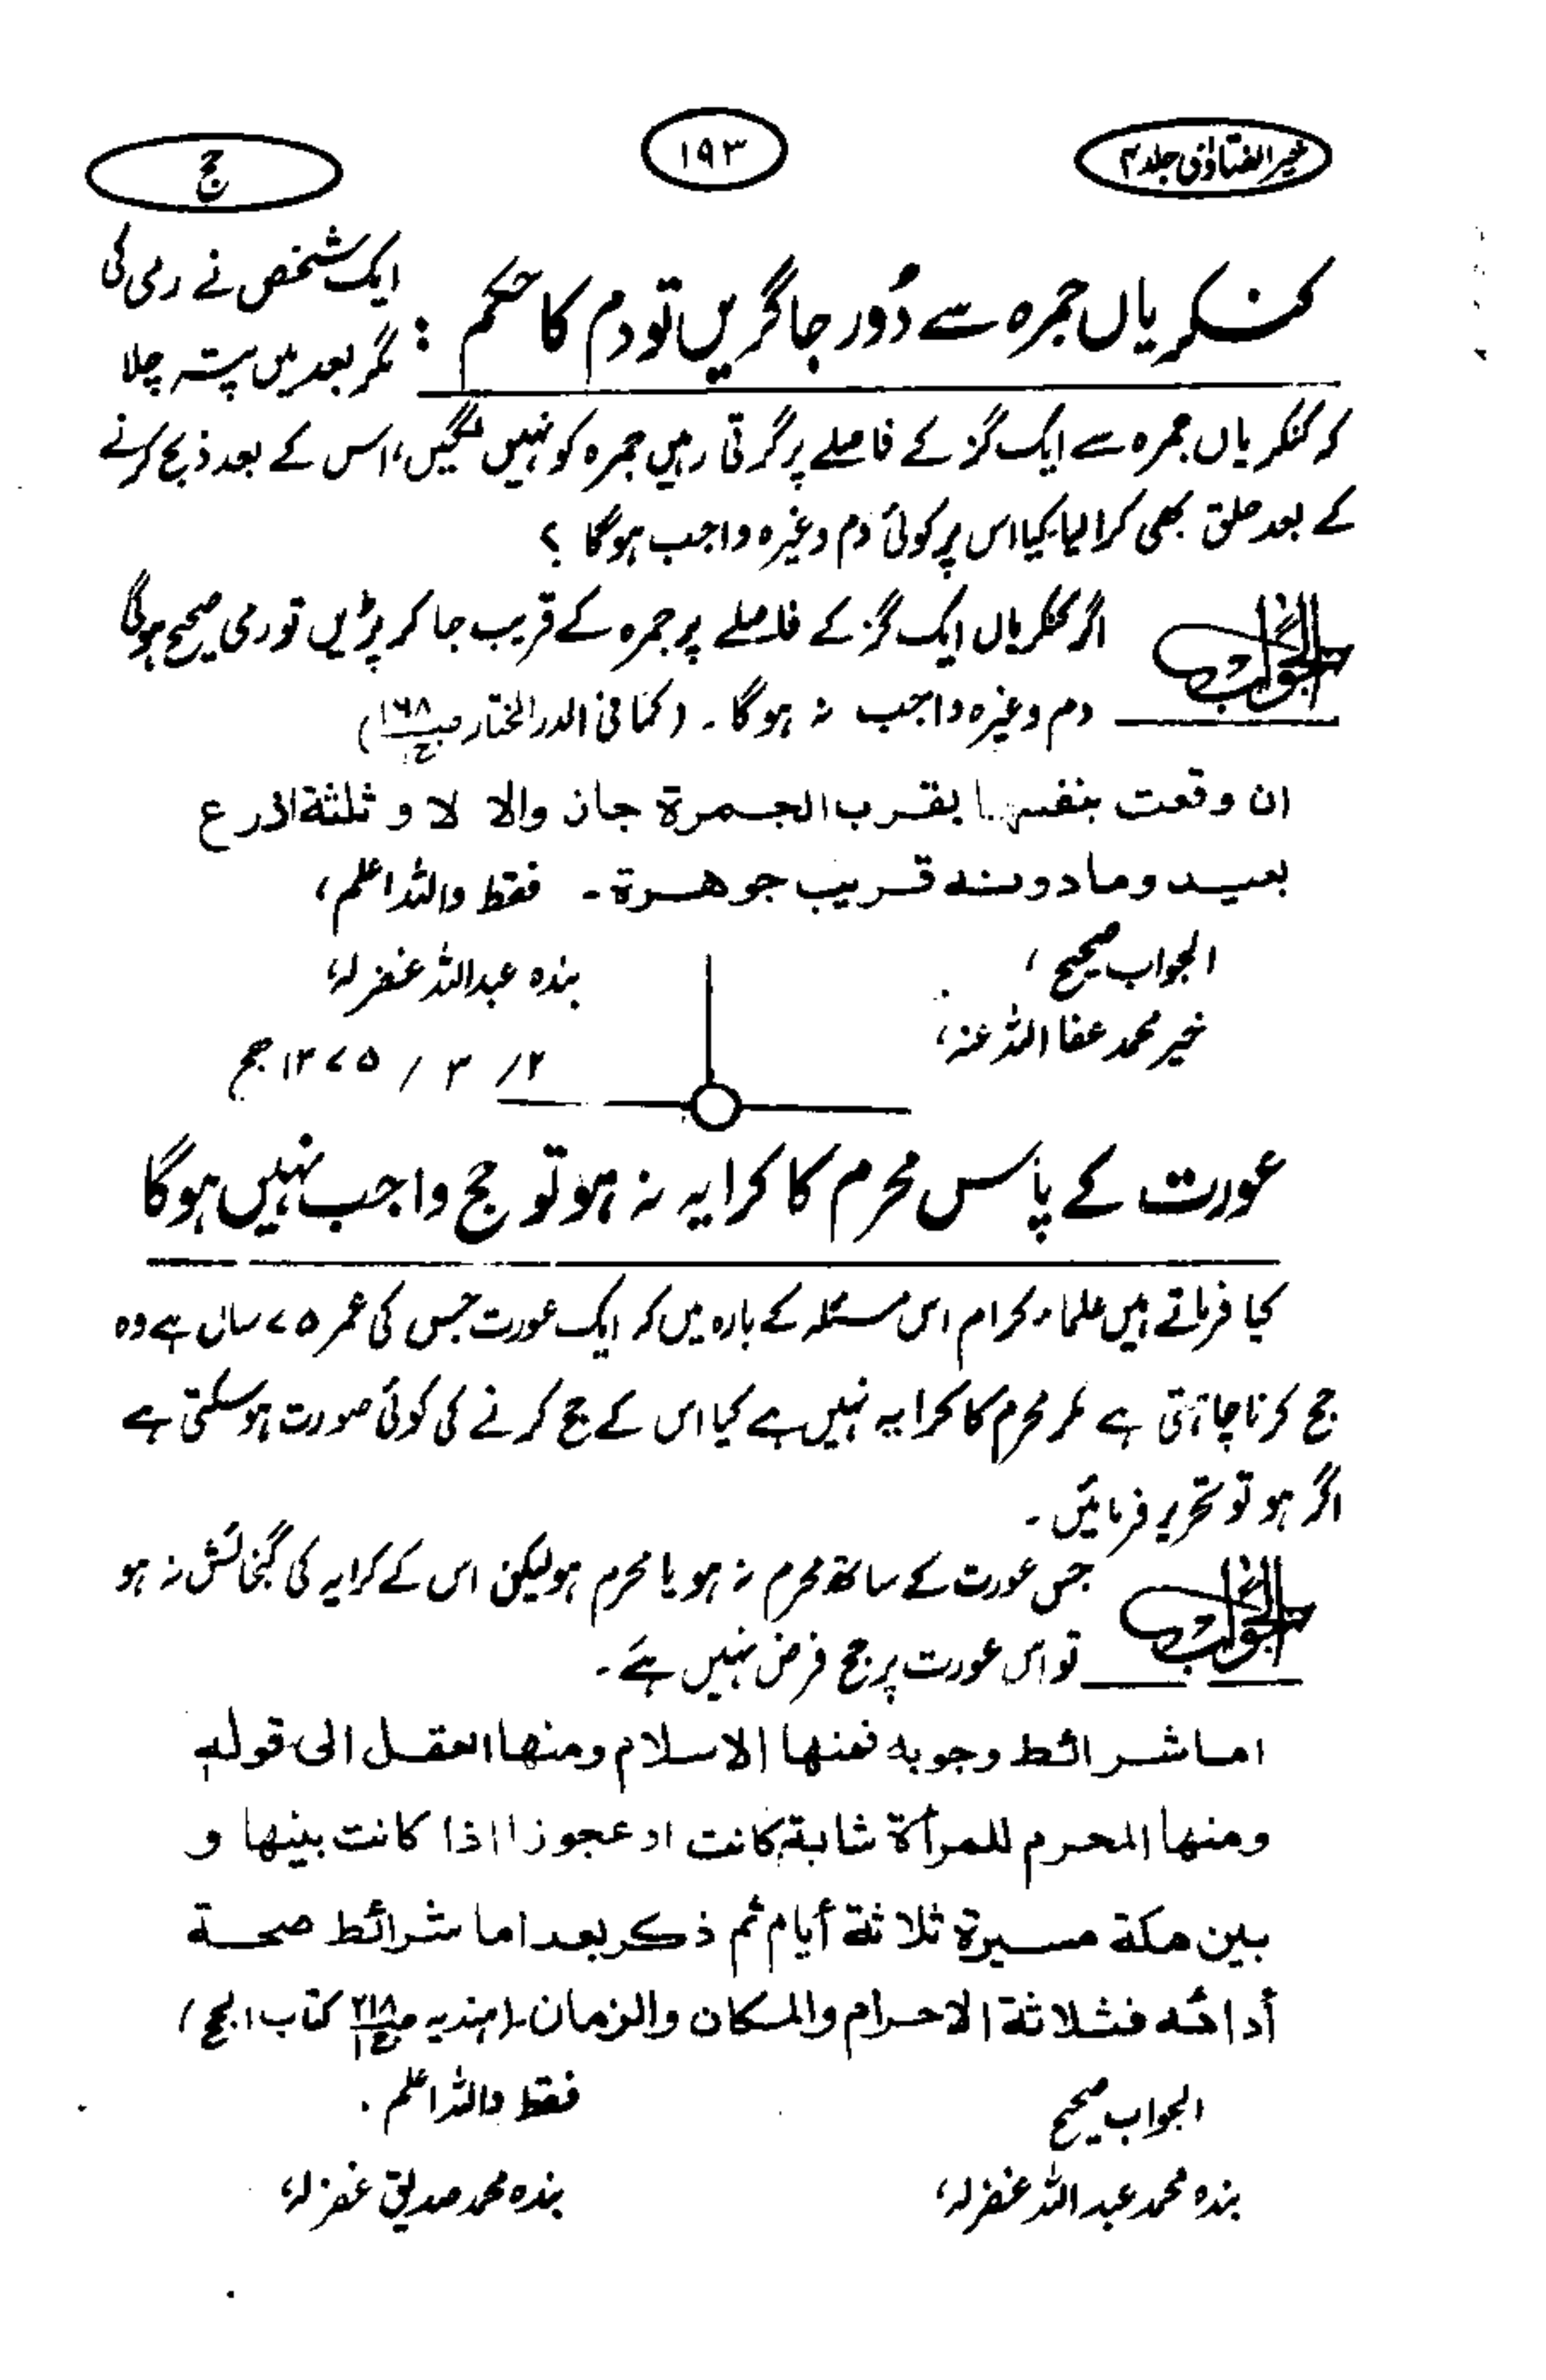 خیر الفتاوٰی جلد ۴
۱۹۳
حج
کنکریاں جمرہ سے دُور جا گریں تو دم کا حکم :
ایک شخص نے رمی کی
مگر بعد میں پتہ چلا
کہ کنکریاں جمرہ سے ایک گز کے فاصلے پر گرتی رہیں جمرہ کو نہیں لگیں، اس کے بعد ذبح کرنے
کے بعد حلق بھی کرا لیا۔ کیا اس پر کوئی دم وغیرہ واجب ہوگا ؟
الجواب
اگر کنکریاں ایک گز کے فاصلے پر جمرہ کے قریب جا کر پڑیں تو رمی صحیح ہوگی
دم وغیرہ واجب نہ ہوگا۔ (کما فی الدر المختار ص۱۶۸ ج)
ان وقعت بنفسہا بقرب الجمرة جاز والا لا و ثلثة اذرع
بعید وما دونہ قریب جوھرة۔ فقط واللہ اعلم،
الجواب صحیح ،
بندہ عبد اللہ غفرلہ،
خیر محمد عفا اللہ عنہ،
۲/ ۳ / ۱۳۷۵ھج
عورت کے پاس محرم کا کرایہ نہ ہو تو حج واجب نہیں ہوگا
کیا فرماتے ہیں علماء کرام اس مسئلہ کے بارہ میں کہ ایک عورت جس کی عمر ۷۵ سال ہے وہ
حج کرنا چاہتی ہے مگر محرم کا کرایہ نہیں ہے کیا اس کے حج کرنے کی کوئی صورت ہو سکتی ہے
اگر ہو تو تحریر فرمائیں۔
الجواب
جس عورت کے ساتھ محرم نہ ہو یا محرم ہو لیکن اس کے کرایہ کی گنجائش نہ ہو
تو اس عورت پر حج فرض نہیں ہے۔
اما شرائط وجوبه فمنها الاسلام ومنها العقل الی قولہ
ومنها المحرم للمرأة شابة كانت او عجوزا اذا كانت بينها و
بين مكة مسيرة ثلاثة أيام ثم ذكر بعد اما شرائط صحة
أدائه فثلاثة الاحرام والمكان والزمان۔ (ہندیہ ص۲۱۸ ج۱ کتاب الحج)
الجواب صحیح
فقط واللہ اعلم ۔
بندہ محمد عبد اللہ غفرلہ،
بندہ محمد صدیق غفرلہ،